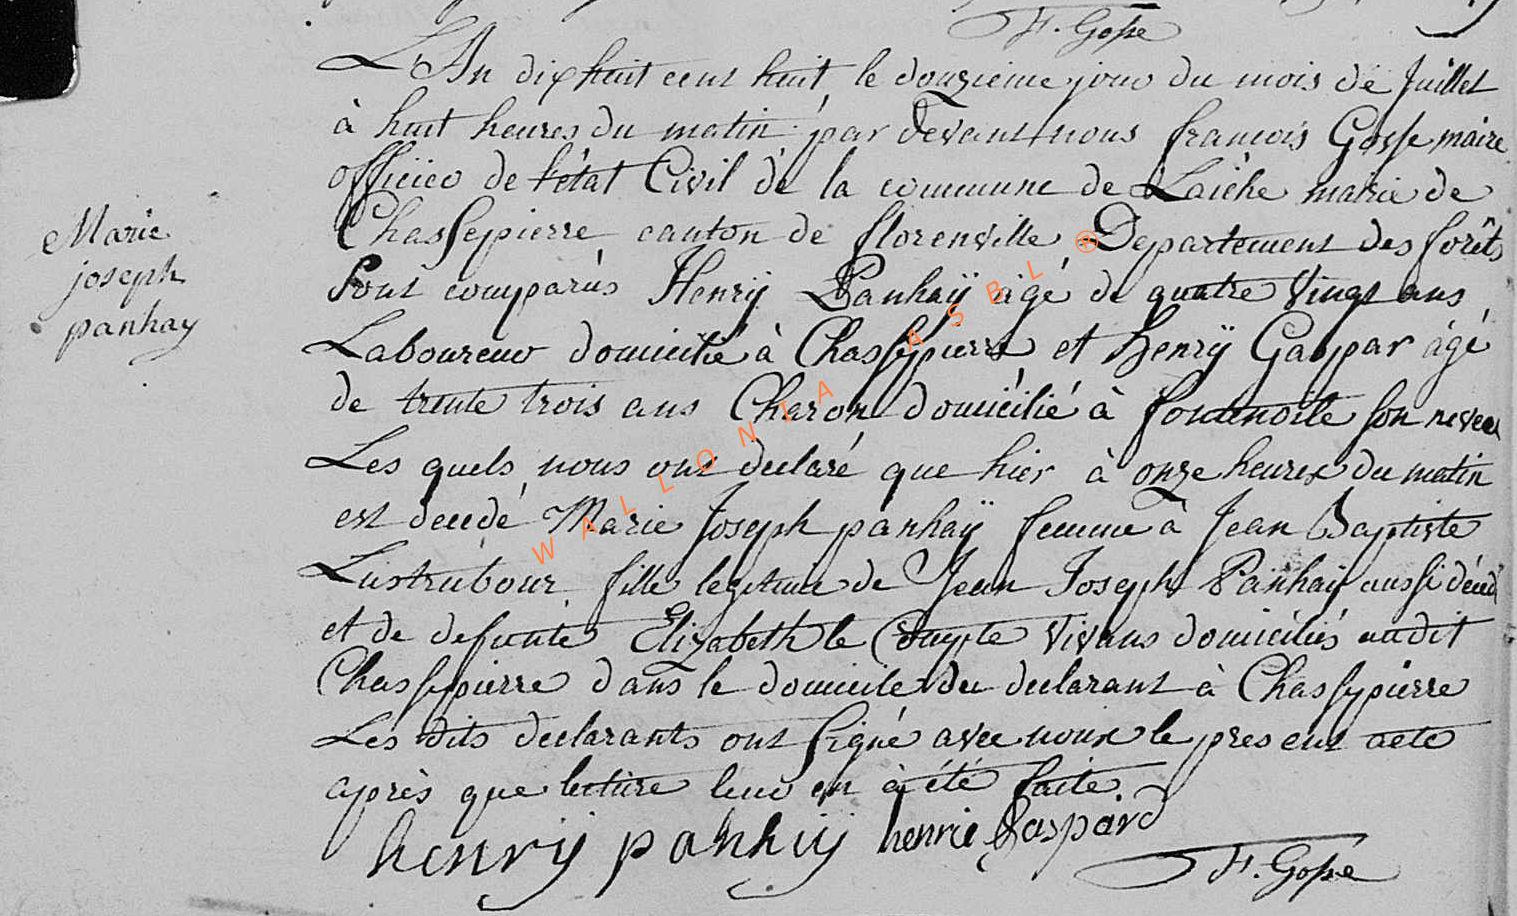 F. Gosse
L'An dix huit cent huit, le douzieme jour du mois de Juillet
à huit heures du matin par devant nous francois Gosse maire
officier de l'état Civil de la commune de Laiche mairie de
Chassepierre canton de florenville Departement des forêts
Sont comparus Henrÿ Panhaÿ âgé de quatre vingt ans
Laboureur domicilié à Chassepierre et henrÿ Gaspar âgé
de trente trois ans Charon domicilié à fontenoile son neveu
Les quels nous ont declaré que hier à onze heures du matin
est decedé Marie Joseph panhaÿ femme à Jean Baptiste
fille legitime de Jean Joseph Panhaÿ aussi décedé
et de defunte Elizabeth le Compte vivans domiciliés audit
Chassepierre dans le domicile du declarant à Chassepierre
Les dits declarants ont signé avec nous le present acte
après que lecture leur en à été faite.
henrÿ panhaÿ henrie Gaspard
F. Gosse
Marie
joseph
panhay
WALLONIA ASBL ®